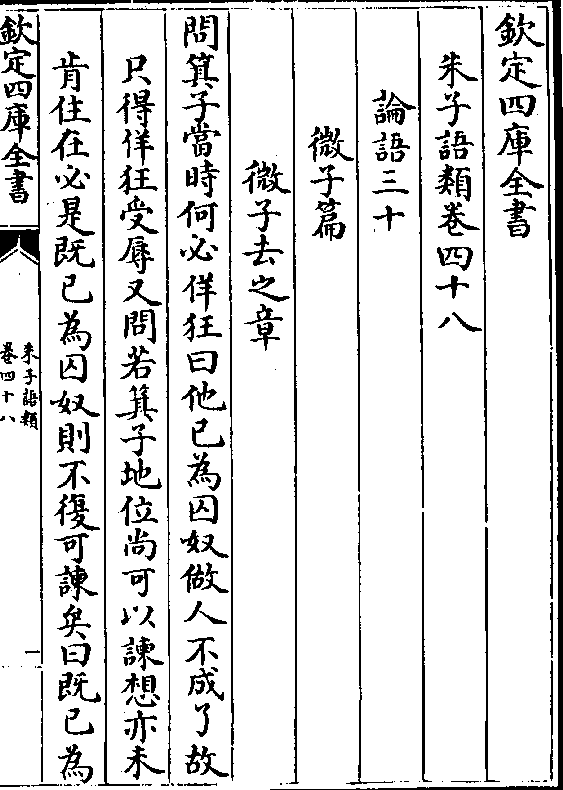 欽定四庫全書
朱子語類卷四十八
論語三十
微子篇
微子去之章
問箕子當時何必佯狂曰他已為囚奴做人不成了故
只得佯狂受辱又問若箕子地位尚可以諫想亦未
肯住在必是既已為囚奴則不復可諫矣曰既已為
欽定四庫全書
朱子語類
卷四十八
一